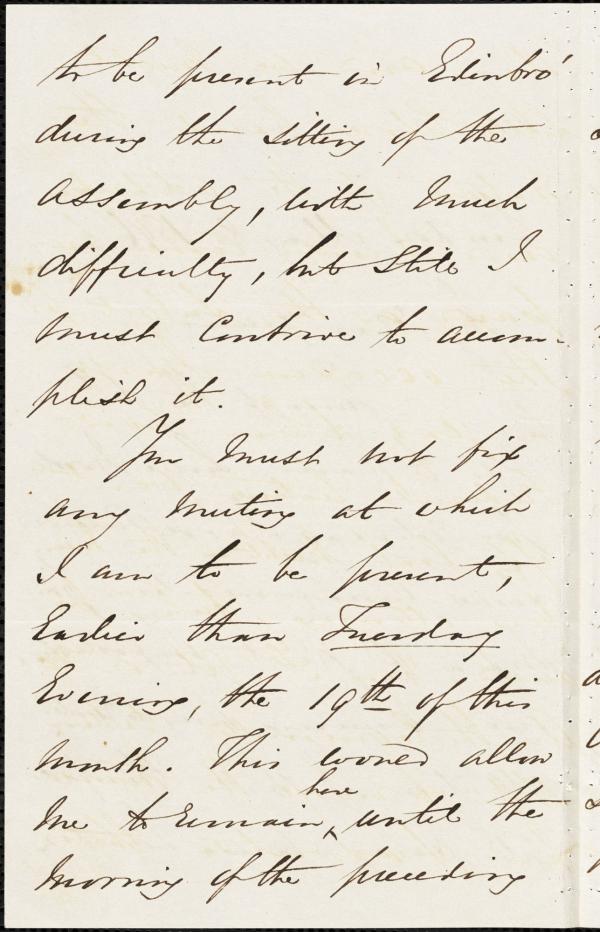 to be present in Edinbro'
during the sitting of the
Assembly, with much
difficulty, but still I
must contrive to accom-
plish it.
You must not fix
any meeting at which
I am to be present,
Earlier than Tuesday
Evening, the 19th of this
month. This would allow
here
me to remain ^ until the
morning of the preceding